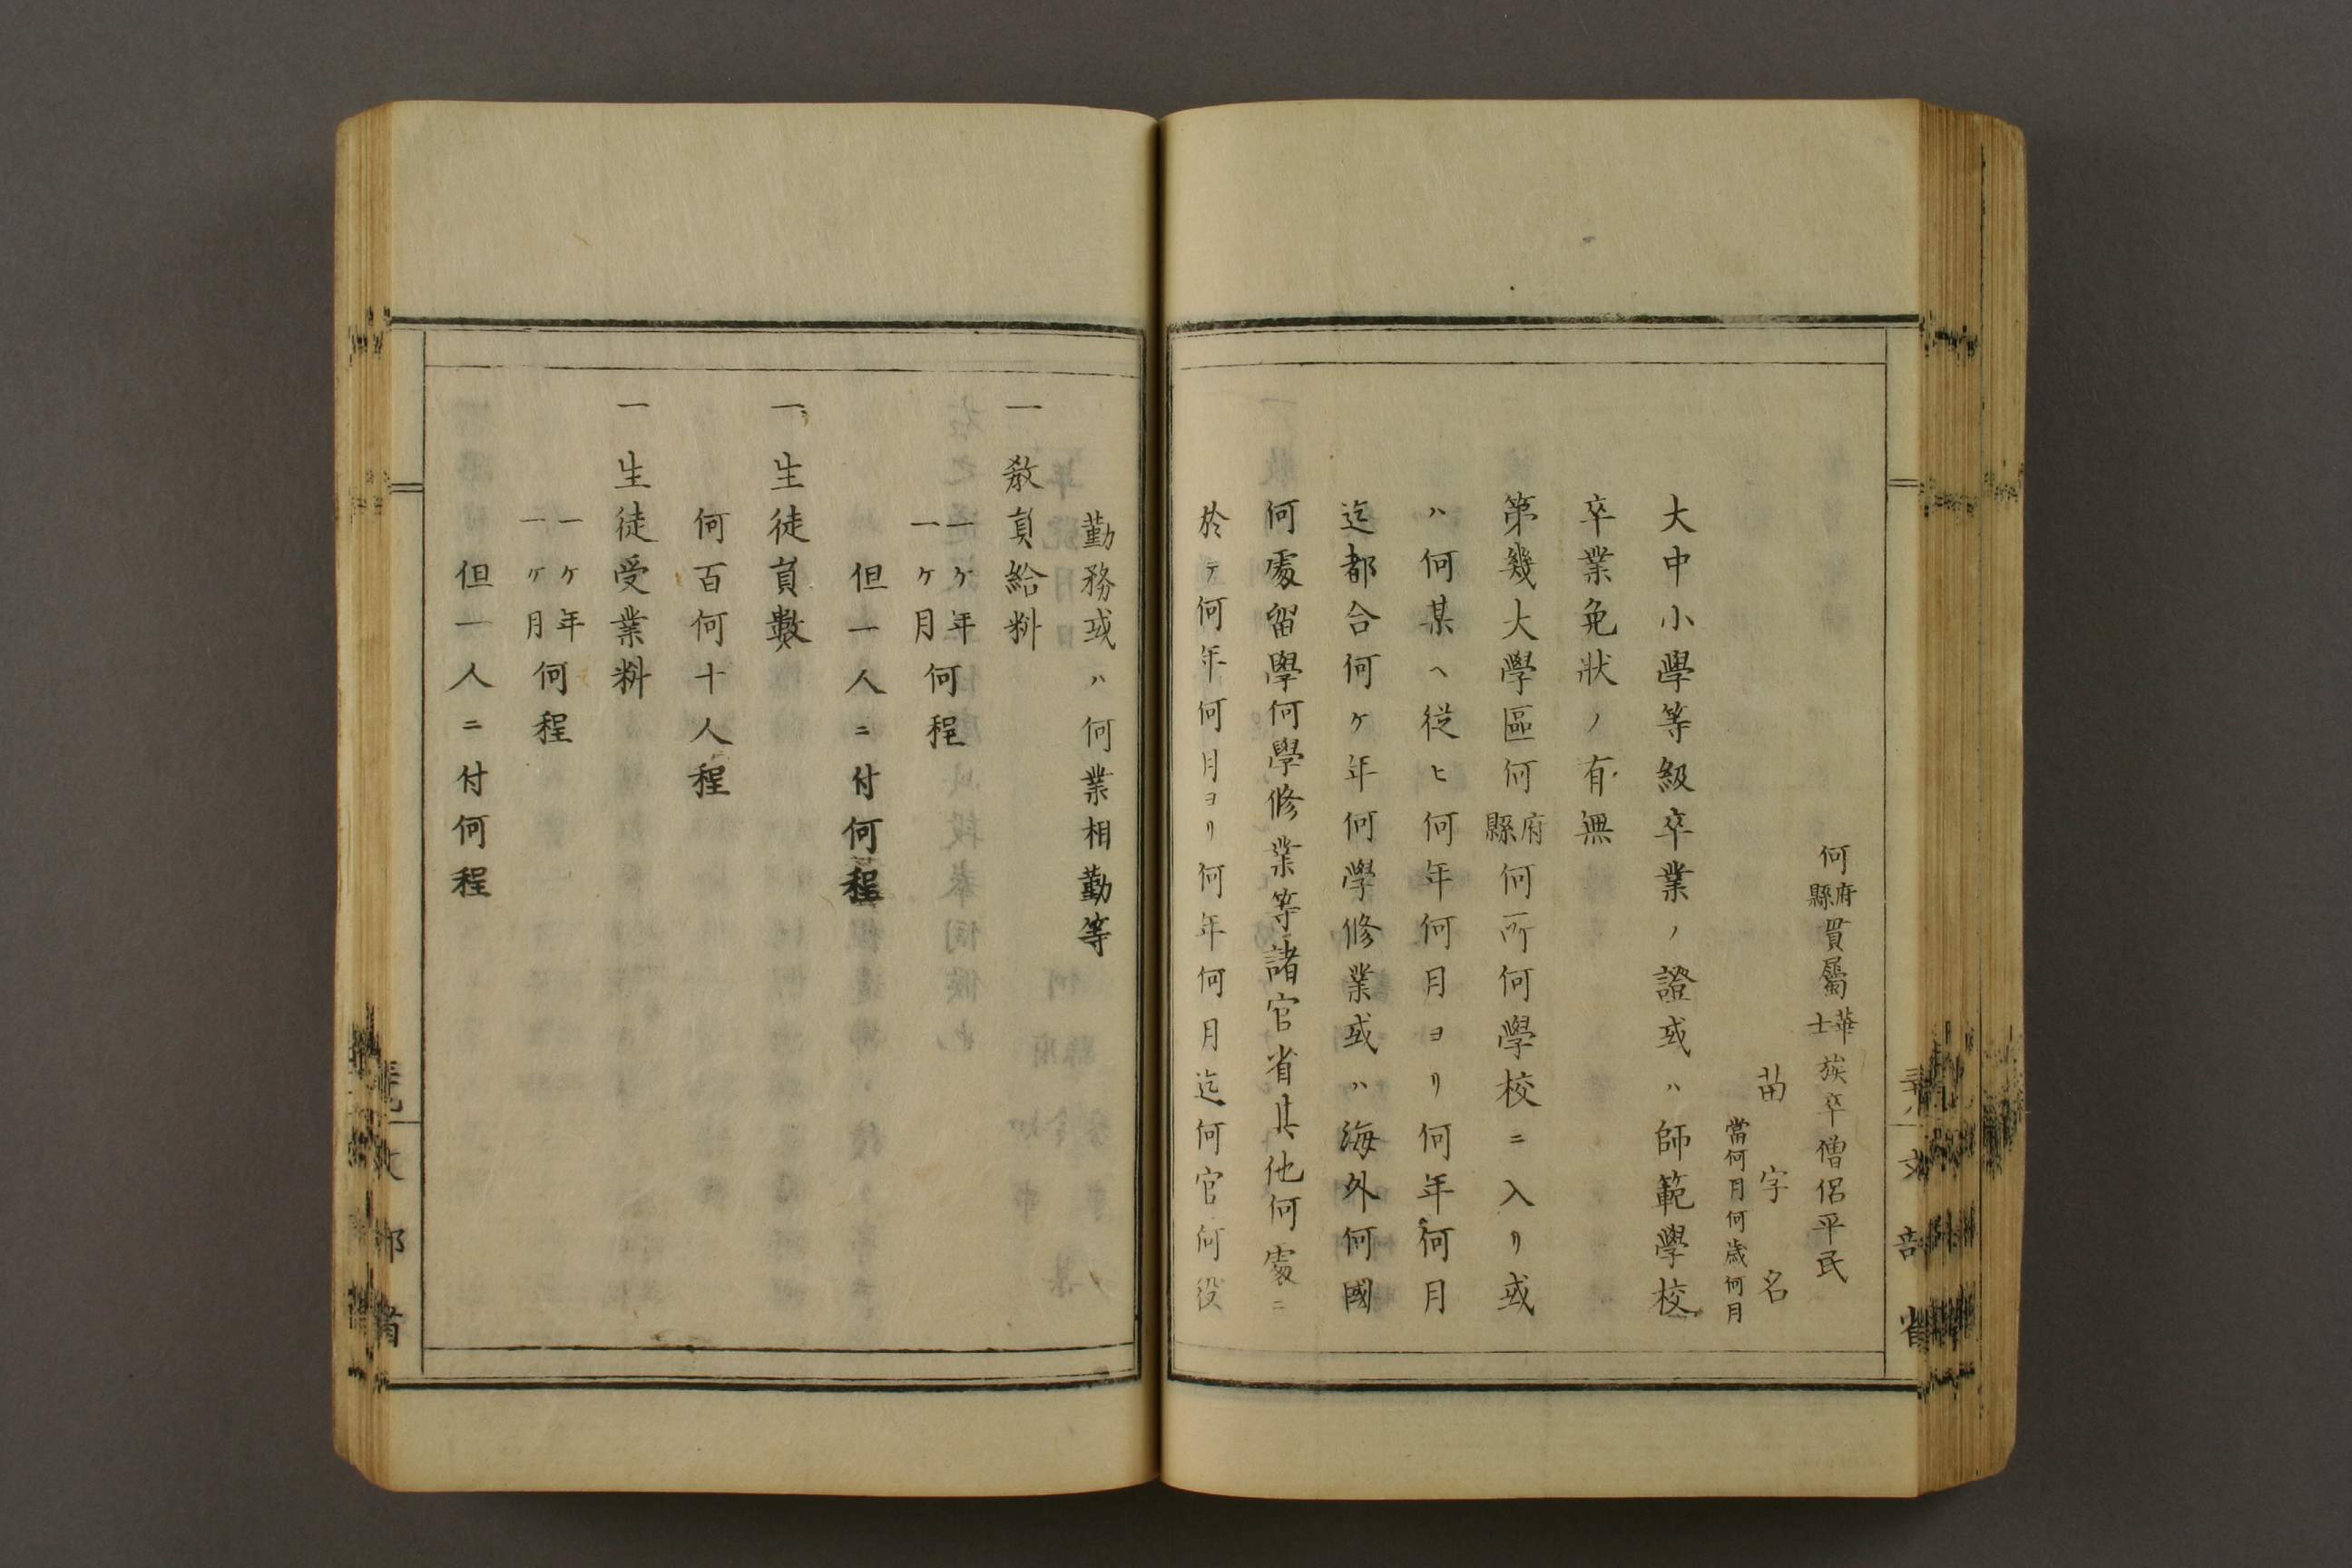 何府縣貫屬華士族卒僧侶平民
苗字名
當何月何歳何月
大中小學等級卒業ノ證或ハ師範學校
卒業免狀ノ有無
第幾大學區何府縣何所何學校ニ入リ或
ハ何某ヘ從ヒ何年何月ヨリ何年何月
迄都合何ケ年何學修業或ハ海外何國
何處留學何學修業等諸官省其他何處ニ
於テ何年何月ヨリ何年何月迄何官何役
勤務或ハ何業相勤等
一敎員給料
一ケ年一ケ月何程
但一人ニ付何程
一生徒員數
何百何十人程
一生徒受業料
一ケ年一ケ月何程
但一人ニ付何程
文部省
文部省